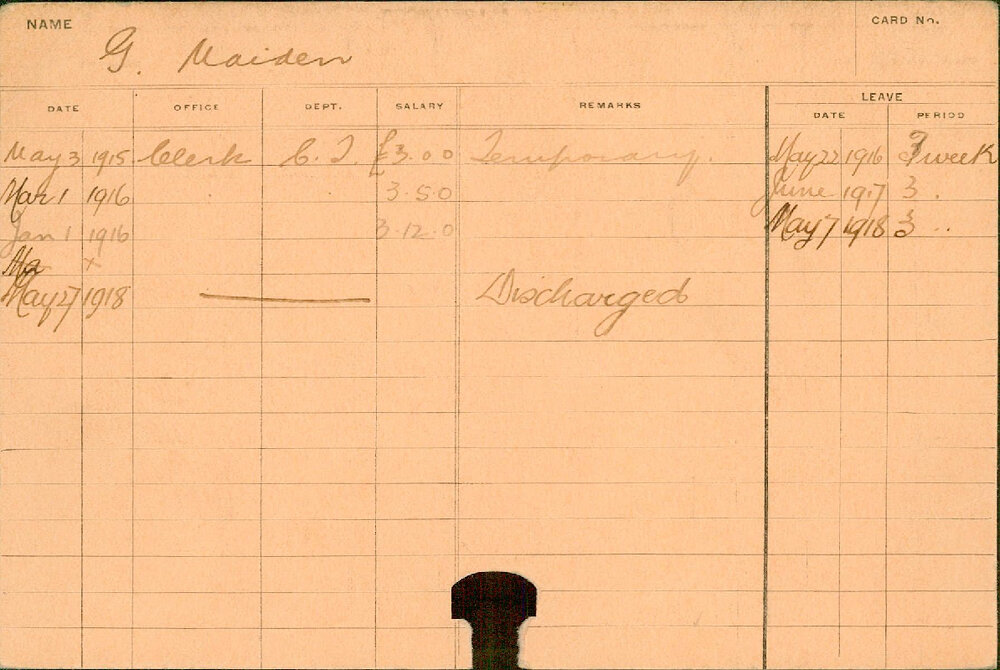 NAME
CARD No.
G. Maiden
LEAVE
DATE OFFICE DEPT. SALARY REMARKS DATE PERIOD
May 3 1915 Clerk C. I. £3.0 0 Temporary. May 22 1916 3 week
Mar 1 1916 3.5.0 June 1917 3 .
Jan 1 1916 3.12.0 May 7 1918 3 ..
Ma x
May 27 1918 Discharged